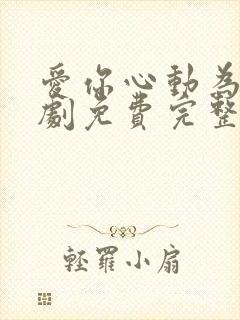 愛你心動為
劇免費完整
輕羅小扇